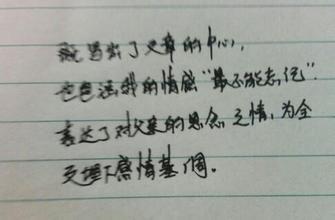 既写出了文章的中心,
也包涵我的情感"最不能忘记".
表达了对父亲的思念之情,为全
文埋下感情基调。